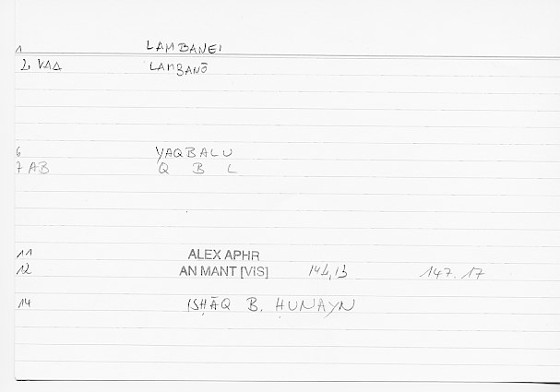 1 LAMBANEI
2 VAA LAMBANŌ
6 YAQBALU
7 AB Q B L
11 ALEX APHR
12 AN MANT [VIS] 147.17
14 ISḤĀQ B. ḤUNAYN